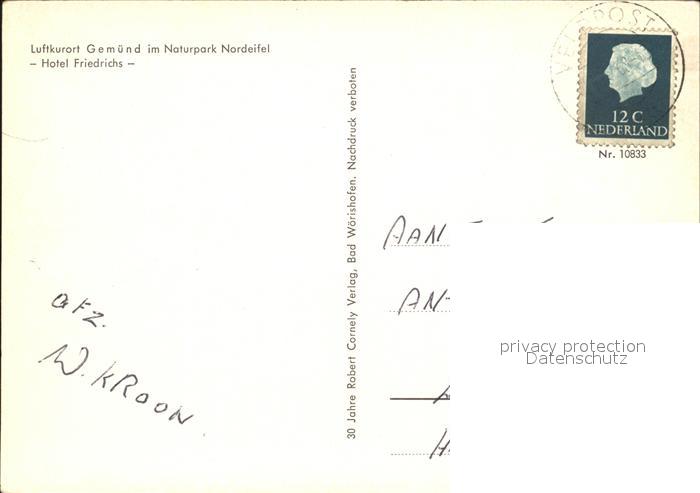 Luftkurort Gemünd im Naturpark Nordeifel
– Hotel Friedrichs –
VELDPOST
12 C
NEDERLAND
Nr. 10833
30 Jahre Robert Cornely Verlag, Bad Wörishofen. Nachdruck verboten
AAN
AN
privacy protection
Datenschutz
afz.
W. KROON
H